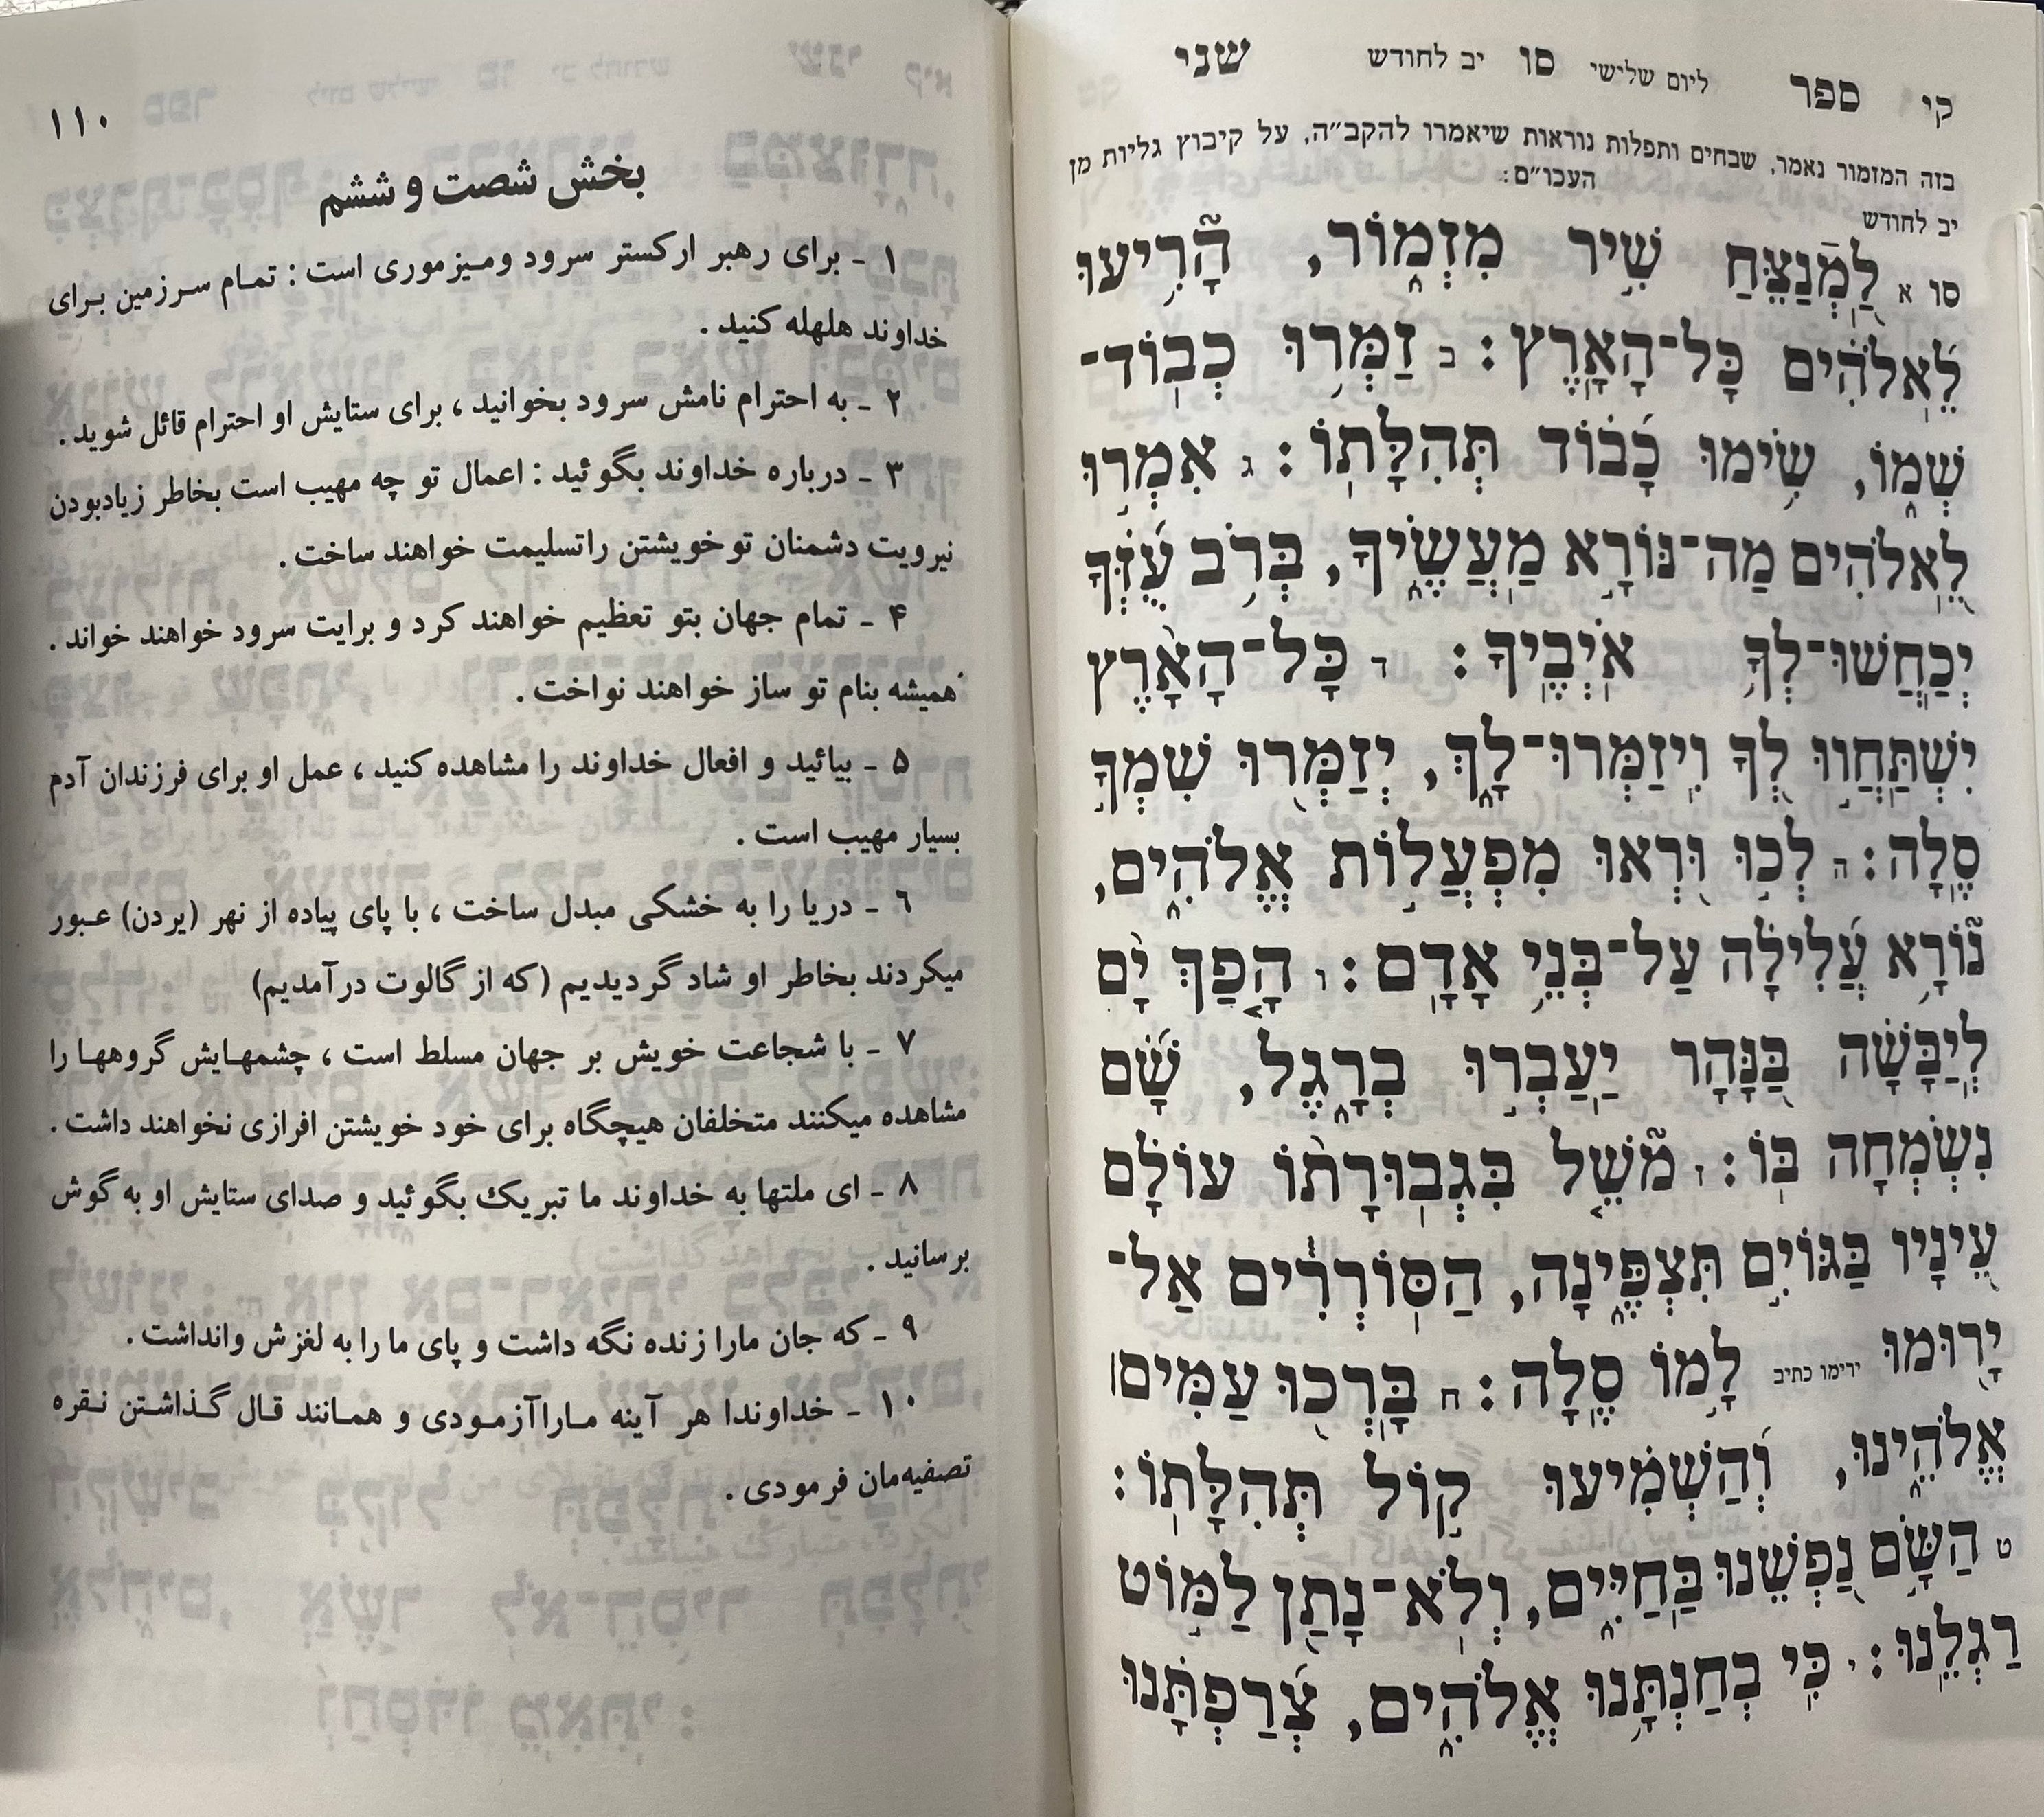 קי ספר ליום שלישי סו יב לחודש שני
בזה המזמור נאמר, שבחים ותפלות נוראות שיאמרו להקב״ה, על קיבוץ גליות מן
העכו״ם:
יב לחודש
סו א לַמְנַצֵּחַ שִׁיר מִזְמוֹר, הָרִיעוּ
לֵאלֹהִים כָּל־הָאָרֶץ: ב זַמְּרוּ כְבוֹד־
שְׁמוֹ, שִׂימוּ כָבוֹד תְּהִלָּתוֹ: ג אִמְרוּ
לֵאלֹהִים מַה־נּוֹרָא מַעֲשֶׂיךָ, בְּרֹב עֻזְּךָ
יְכַחֲשׁוּ־לְךָ אֹיְבֶיךָ: ד כָּל־הָאָרֶץ
יִשְׁתַּחֲווּ לְךָ וִיזַמְּרוּ־לָךְ, יְזַמְּרוּ שִׁמְךָ
סֶלָה: ה לְכוּ וּרְאוּ מִפְעֲלוֹת אֱלֹהִים,
נוֹרָא עֲלִילָה עַל־בְּנֵי אָדָם: ו הָפַךְ יָם
לְיַבָּשָׁה בַּנָּהָר יַעַבְרוּ בְרָגֶל, שָׁם
נִשְׂמְחָה בּוֹ: ז מֹשֵׁל בִּגְבוּרָתוֹ עוֹלָם
עֵינָיו בַּגּוֹיִם תִּצְפֶּינָה, הַסּוֹרְרִים אַל־
יָרוּמוּ ירימו כתיב לָמוֹ סֶלָה: ח בָּרְכוּ עַמִּים|
אֱלֹהֵינוּ, וְהַשְׁמִיעוּ קוֹל תְּהִלָּתוֹ:
ט הַשָּׂם נַפְשֵׁנוּ בַּחַיִּים, וְלֹא־נָתַן לַמּוֹט
רַגְלֵנוּ: י כִּי בְחַנְתָּנוּ אֱלֹהִים, צְרַפְתָּנוּ
۱۱۰
بخش شصت و ششم
۱ - برای رهبر ارکستر سرود ومیزموری است : تمام سرزمین برای
خداوند هلهله کنید .
۲ - به احترام نامش سرود بخوانید ، برای ستایش او احترام قائل شوید .
۳ - درباره خداوند بگوئید : اعمال تو چه مهیب است بخاطر زیادبودن
نیرویت دشمنان تو خویشتن راتسلیمت خواهند ساخت .
۴ - تمام جهان بتو تعظیم خواهند کرد و برایت سرود خواهند خواند .
همیشه بنام تو ساز خواهند نواخت .
۵ - بیائید و افعال خداوند را مشاهده کنید ، عمل او برای فرزندان آدم
بسیار مهیب است .
٦ - دریا را به خشکی مبدل ساخت ، با پای پیاده از نهر (یردن) عبور
میکردند بخاطر او شاد گردیدیم (که از گالوت درآمدیم)
۷ - با شجاعت خویش بر جهان مسلط است ، چشمهایش گروهها را
مشاهده میکنند متخلفان هیچگاه برای خود خویشتن افرازی نخواهند داشت .
۸ - ای ملتها به خداوند ما تبریک بگوئید و صدای ستایش او به گوش
برسانید .
۹ - که جان مارا زنده نگه داشت و پای ما را به لغزش وانداشت .
۱۰ - خداوندا هر آینه ماراآزمودی و همانند قال گذاشتن نقره
تصفیه‌مان فرمودی .